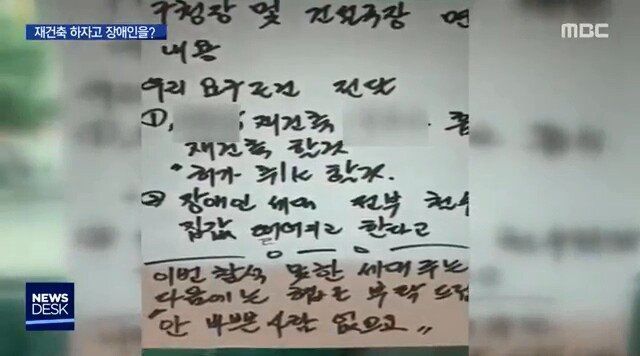 재건축 하자고 장애인을?
MBC
구청장 및 건설국장 면
내용
우리 요구조건 전달
①. 재건축
재건축 할것
허가 취소 할것.
② 장애인 세대 전부
집값 떨어지고 한다고
이번 참석 못한 세대주는
다음에는 협조 부탁 드립
"안 바쁜 사람 없으고"
NEWS
DESK